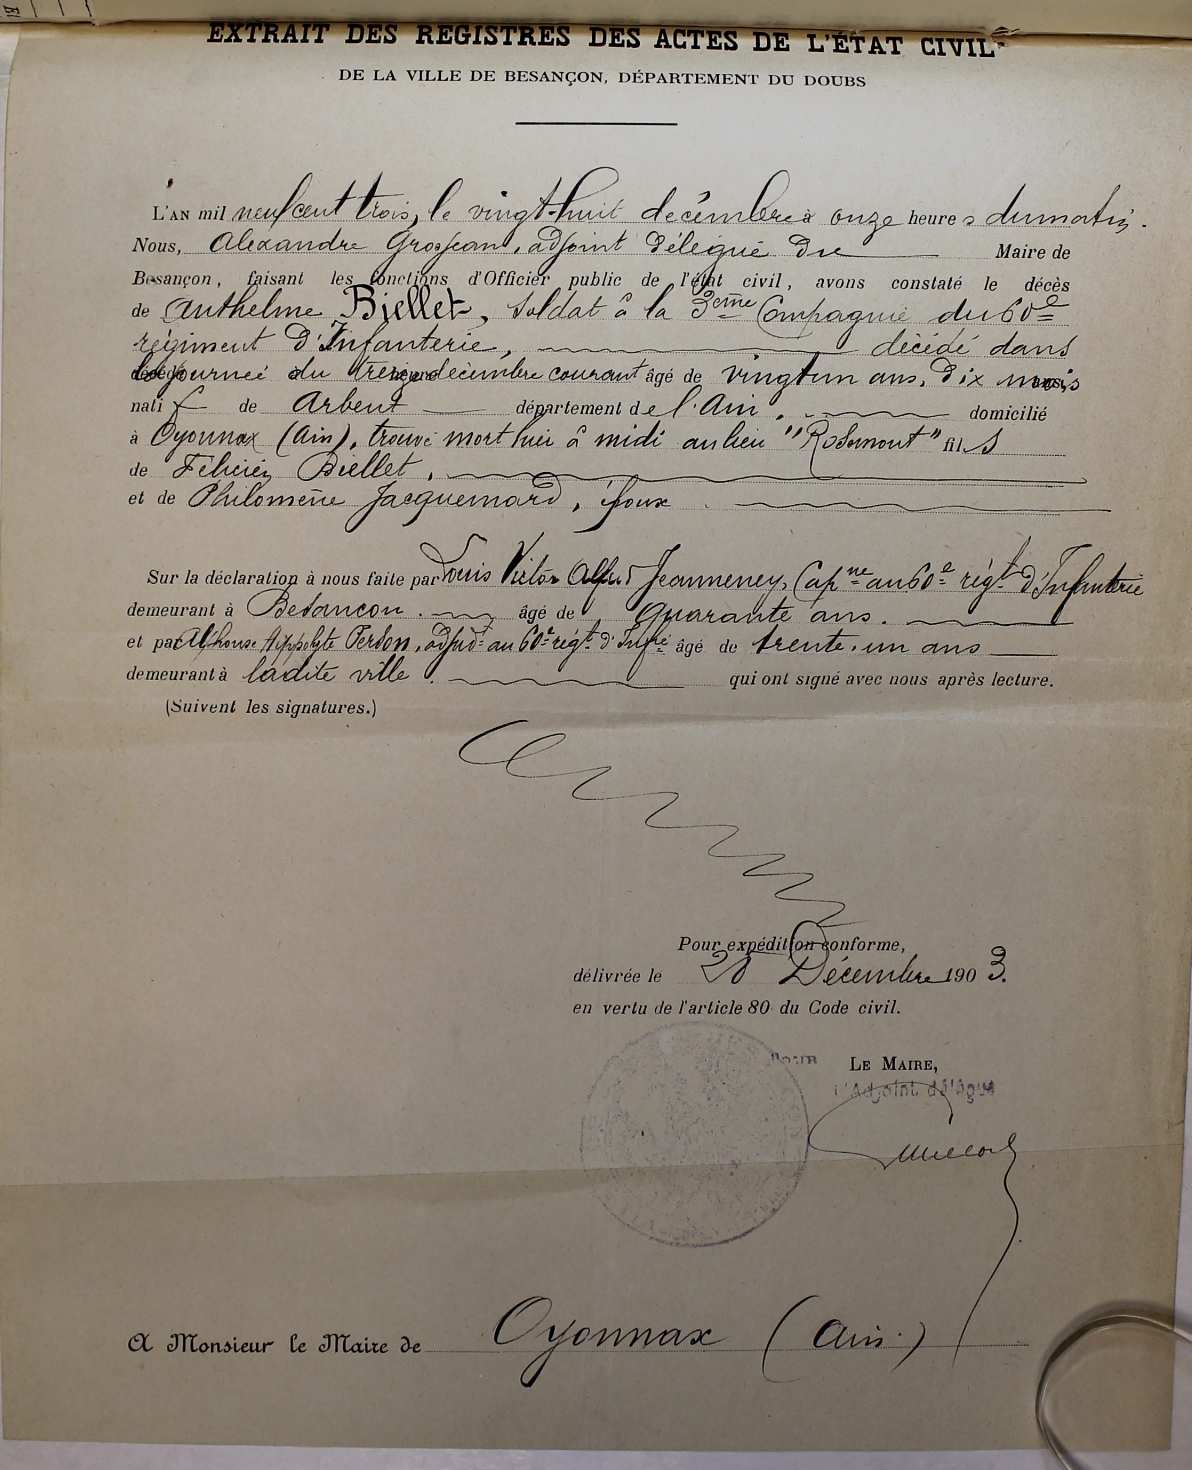 EXTRAIT DES REGISTRES DES ACTES DE L'ÉTAT CIVIL
DE LA VILLE DE BESANÇON, DÉPARTEMENT DU DOUBS
L'AN mil neuf cent trois, le vingt-huit décembre à onze heures du matin.
Nous, Alexandre Grosjean, adjoint délégué du Maire de
Besançon, faisant les fonctions d'Officier public de l'état civil, avons constaté le décès
de Anthelme Biellet, soldat à la 3eme Compagnie du 60e
régiment d'Infanterie, décédé dans
la journée du treize décembre courant âgé de vingt un ans, dix mois
natif de Arbent département de l'Ain, domicilié
à Oyonnax (Ain), trouvé mort hier à midi au lieu "Rosemont" fils
de Félicien Biellet,
et de Philomène Jacquemard, époux
Sur la déclaration à nous faite par Louis Victor Alfred Jeanneney, Capne au 60e régt d'Infanterie
demeurant à Besançon. âgé de quarante ans.
et par Alphonse Hippolyte Perdon, adjudt au 60e régt d'Infie âgé de trente-un ans
demeurant à ladite ville. qui ont signé avec nous après lecture.
(Suivent les signatures.)
Pour expédition conforme,
délivrée le 28 Décembre 1903.
en vertu de l'article 80 du Code civil.
LE MAIRE,
L'Adjoint délégué
A Monsieur le Maire de Oyonnax (Ain.)